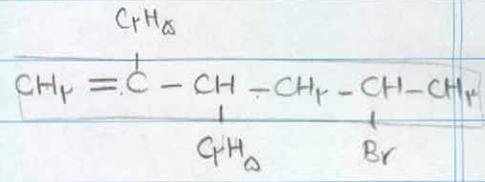 C۲H۵
CH۲ = C – CH – CH۲ – CH – CH۳
C۲H۵ Br